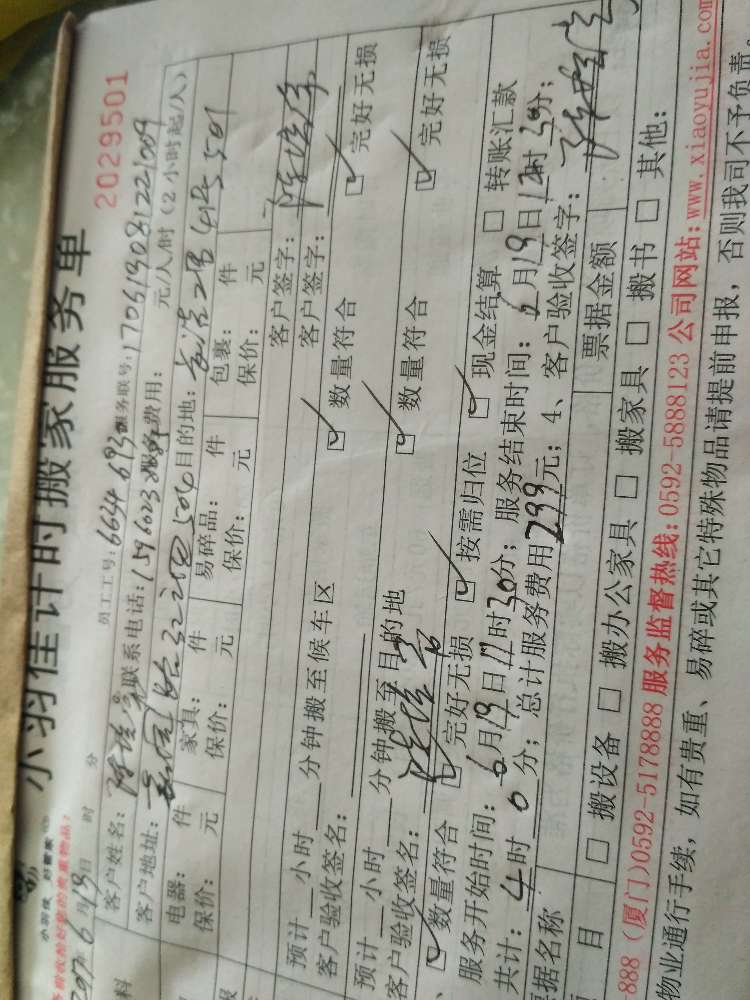 小羽佳计时搬家服务单
2029501
小羽佳 好管家
贵重物品!
2017 6月19日 时 分
员工工号: 6634 693
服务联号: 170619081221009
客户姓名: 联系电话: 服务费用: 元/人/时（2小时起/人）
客户地址: 目的地:
电器: 件 家具: 件 易碎品: 件 包裹: 件
保价: 元 保价: 元 保价: 元 保价: 元
客户签字:
预计 小时 分钟搬至候车区 客户签字:
客户验收签名: ☑数量符合 ☑完好无损
预计 小时 分钟搬至目的地
客户验收签名: ☑数量符合 ☑完好无损
☑数量符合 ☑完好无损 ☑按需归位 ☑现金结算 □转账汇款
服务开始时间: 6月19日 时30分; 服务结束时间: 6月19日 时30分;
共计: 4时0分; 总计服务费用299元; 4、客户验收签字:
据名称 票据金额
日 □搬设备 □搬办公家具 □搬家具 □搬书 □其他:
888（厦门)0592-5178888 服务监督热线: 0592-5888123 公司网站: www.xiaoyujia.com
物业通行手续，如有贵重、易碎或其它特殊物品请提前申报，否则我司不予负责。